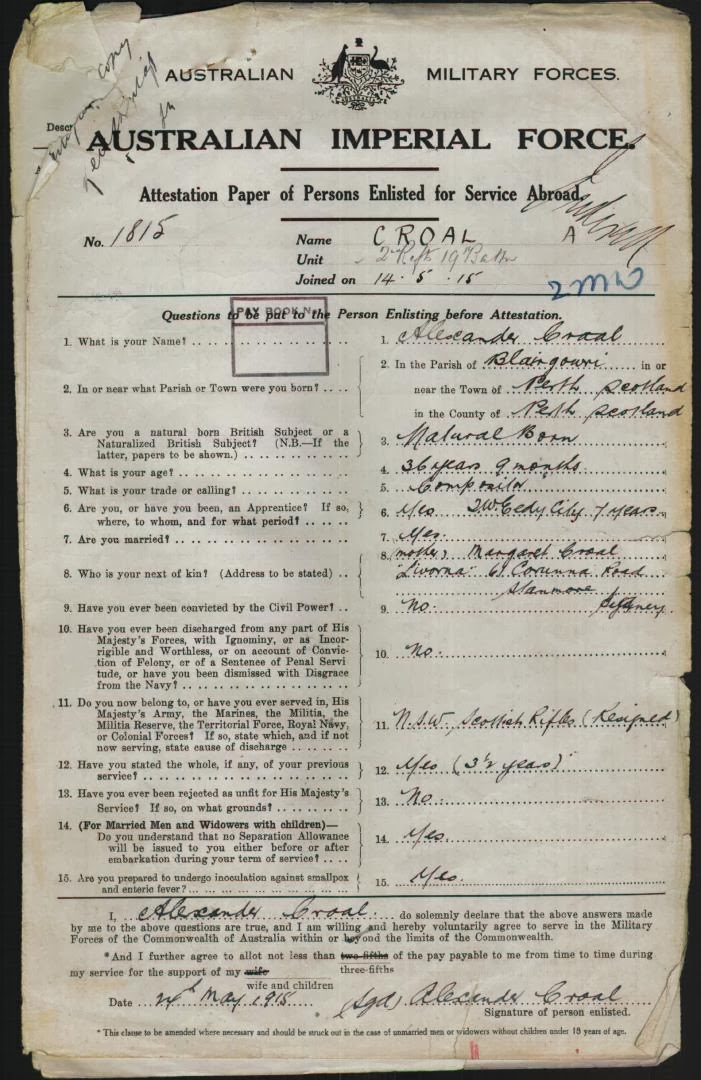 copy
AUSTRALIAN MILITARY FORCES.
Descr
AUSTRALIAN IMPERIAL FORCE.
Attestation Paper of Persons Enlisted for Service Abroad.
No. 1815 Name CROAL A
Unit 2 Refts 19 Battn
Joined on 14 . 5 . 15
Questions to be put to the Person Enlisting before Attestation.
PAY BOOK N
1. What is your Name? .. .. 1. Alexander Croal
2. In or near what Parish or Town were you born? .. .. 2. In the Parish of Blairgouri in or
near the Town of Perth Scotland
in the County of Perth Scotland
3. Are you a natural born British Subject or a
Naturalized British Subject? (N.B.—If the
latter, papers to be shown.) .. .. 3. Natural Born
4. What is your age? .. .. 4. 36 years 9 months
5. What is your trade or calling? .. .. 5. Compositor
6. Are you, or have you been, an Apprentice? If so,
where, to whom, and for what period? .. .. 6. Yes City 7 years
7. Are you married? .. .. 7. Yes.
8. Who is your next of kin? (Address to be stated) .. 8. (mother) Margaret Croal
"Livorna" 61 Corunna Road
Stanmore
Sydney.
9. Have you ever been convicted by the Civil Power? .. 9. No.
10. Have you ever been discharged from any part of His
Majesty's Forces, with Ignominy, or as Incor-
rigible and Worthless, or on account of Convic-
tion of Felony, or of a Sentence of Penal Servi
tude, or have you been dismissed with Disgrace
from the Navy? .. .. 10. No.
11. Do you now belong to, or have you ever served in, His
Majesty's Army, the Marines, the Militia, the
Militia Reserve, the Territorial Force, Royal Navy,
or Colonial Forces? If so, state which, and if not
now serving, state cause of discharge .. .. 11. N.S.W. Scottish Rifles (Resigned)
12. Have you stated the whole, if any, of your previous
service? .. .. 12. Yes (3½ years)
13. Have you ever been rejected as unfit for His Majesty's
Service? If so, on what grounds? .. .. 13. No.
14. (For Married Men and Widowers with children)—
Do you understand that no Separation Allowance
will be issued to you either before or after
embarkation during your term of service? .. .. 14. Yes.
15. Are you prepared to undergo inoculation against smallpox
and enteric fever? ... ... 15. Yes.
I, Alexander Croal do solemnly declare that the above answers made
by me to the above questions are true, and I am willing and hereby voluntarily agree to serve in the Military
Forces of the Commonwealth of Australia within or beyond the limits of the Commonwealth.
*And I further agree to allot not less than two-fifths of the pay payable to me from time to time during
three-fifths
my service for the support of my wife
wife and children
Date 24th May 1915 (Sgd) Alexander Croal
Signature of person enlisted.
* This clause to be amended where necessary and should be struck out in the case of unmarried men or widowers without children under 18 years of age.